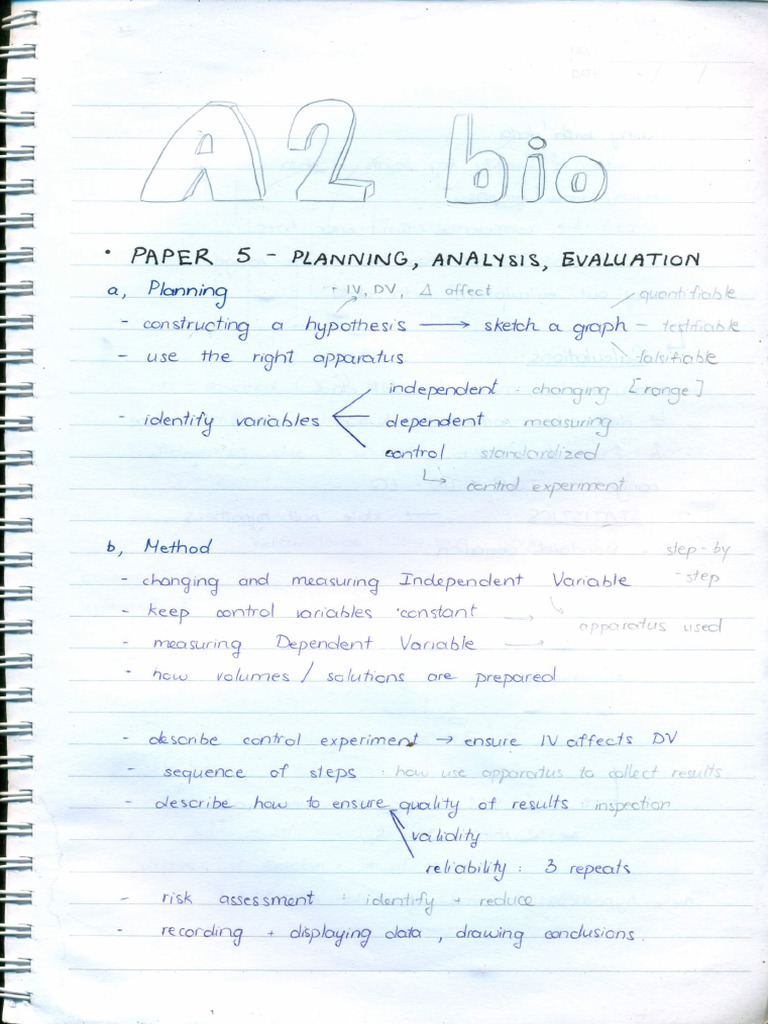 A2 bio
• PAPER 5 - PLANNING, ANALYSIS, EVALUATION
a, Planning
IV, DV, Δ affect
quantifiable
- constructing a hypothesis → sketch a graph - testfiable
falsifiable
- use the right apparatus
independent : changing [range]
- identify variables
dependent - measuring
control : standardized
↳ control experiment
b, Method
step-by-step
- changing and measuring Independent Variable
- keep control variables constant →
apparatus used
- measuring Dependent Variable →
- how volumes / solutions are prepared
- describe control experiment → ensure IV affects DV
- sequence of steps · how use apparatus to collect results
- describe how to ensure quality of results : inspection
validity
reliability : 3 repeats
- risk assessment : identify + reduce
- recording + displaying data, drawing conclusions.